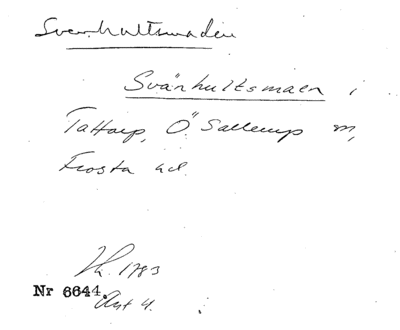 Svenhultsmaden
Svänhultsmaen i
Tattarp, Ö. Sallerup m,
Frosta hd.
1783
Nr 6644.
Akt 4.